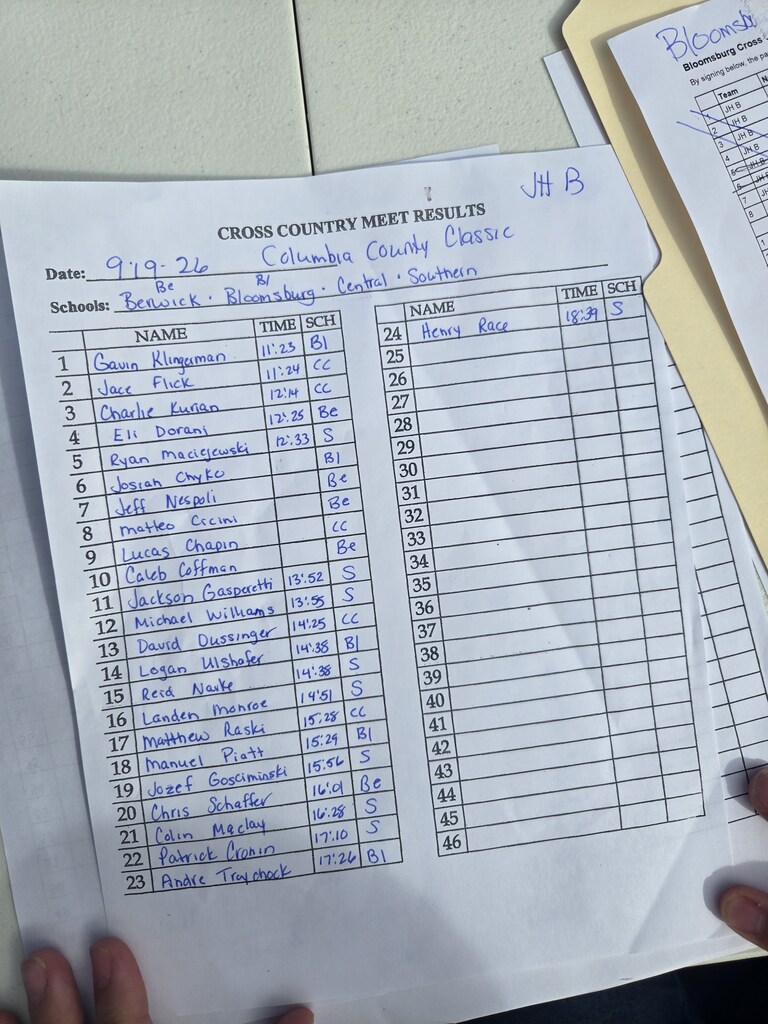 JH B
CROSS COUNTRY MEET RESULTS
Date: 9-19-26 Columbia County Classic
Be Bl
Schools: Berwick · Bloomsburg · Central · Southern
NAME TIME SCH
1 Gavin Klingerman 11:23 Bl
2 Jace Flick 11:24 CC
3 Charlie Kurian 12:14 CC
4 Eli Dorani 12:25 Be
5 Ryan Maciejewski 12:33 S
6 Josiah Chyko Bl
7 Jeff Nespoli Be
8 Matteo Cicini Be
9 Lucas Chapin CC
10 Caleb Coffman Be
11 Jackson Gasperetti 13:52 S
12 Michael Williams 13:55 S
13 David Dussinger 14:25 CC
14 Logan Ulshafer 14:38 Bl
15 Reid 14:38 S
16 Landen Monroe 14:51 S
17 Matthew Raski 15:28 CC
18 Manuel Piatt 15:29 Bl
19 Jozef Gosciminski 15:56 S
20 Chris Schaffer 16:01 Be
21 Colin Maclay 16:28 S
22 Patrick Cronin 17:10 S
23 Andre Traychock 17:26 Bl
NAME TIME SCH
24 Henry Race 18:39 S
25
26
27
28
29
30
31
32
33
34
35
36
37
38
39
40
41
42
43
44
45
46
Bloomsb
Bloomsburg Cross
By signing below, the pa
Team N
1 JH B
2 JH B
3 JH B
4 JH B
5 JH B
6 JH B
7 JH
8